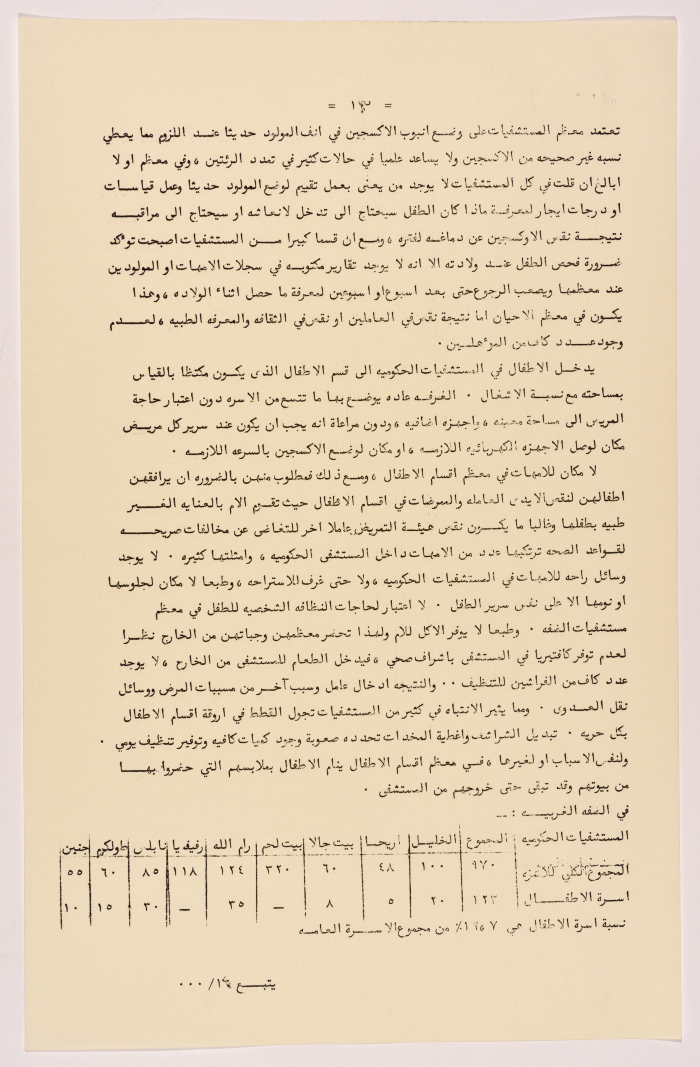 = ١٣ =
تعتمد معظم المستشفيات على وضع انبوب الاكسجين في انف المولود حديثا عند اللزوم مما يعطي
نسبه غير صحيحه من الاكسجين ولا يساعد علميا في حالات كثير في تمدد الرئتين ، وفي معظم او لا
ابالغ ان قلت في كل المستشفيات لا يوجد من يعنى بعمل تقييم لوضع المولود حديثا وعمل قياسات
او درجات ايجار لمعرفة ماذا كان الطفل سيحتاج الى تدخل لانعاشه او سيحتاج الى مراقبه
نتيجة نقص الاوكسجين عن دماغه لفتره ، ومع ان قسما كبيرا من المستشفيات اصبحت توءكد
ضرورة فحص الطفل عند ولادته الا انه لا يوجد تقارير مكتوبه في سجلات الامهات او المولودين
عند معظمها ويصعب الرجوع حتى بعد اسبوع او اسبوعين لمعرفة ما حصل اثناء الولاده ، وهذا
يكون في معظم الاحيان اما نتيجة نقص في العاملين او نقص في الثقافه والمعرفه الطبيه ، لعدم
وجود عدد كاف من الموءهلين .
يدخل الاطفال في المستشفيات الحكوميه الى قسم الاطفال الذى يكون مكتظا بالقياس
بمساحته مع نسبة الاشغال . الغرفه عاده يوضع بها ما تتسع من الاسره دون اعتبار حاجة
المريض الى مساحة معينه ، واجهزه اضافيه ، ودون مراعاة انه يجب ان يكون عند سرير كل مريض
مكان لوصل الاجهزه الكهربائيه اللازمه ، او مكان لوضع الاكسجين بالسرعه اللازمه .
لا مكان للامهات في معظم اقسام الاطفال ، ومع ذلك فمطلوب منهن بالضروره ان يرافقهن
اطفالهن لنقص الايدى العامله والممرضات في اقسام الاطفال حيث تقوم الام بالعنايه الغير
طبيه بطفلها وغالبا ما يكون نقص هيئة التمريض عاملا اخر للتغاضى عن مخالفات صريحه
لقواعد الصحه ترتكبها عدد من الامهات داخل المستشفى الحكوميه ، وامثلتها كثيره . لا يوجد
وسائل راحه للامهات في المستشفيات الحكوميه ، ولا حتى غرف للاستراحه ، وطبعا لا مكان لجلوسها
او نومها الا على نفس سرير الطفل . لا اعتبار لحاجات النظافه الشخصيه للطفل في معظم
مستشفيات الضفه . وطبعا لا يوفر الاكل للام ولهذا تحضر معظمهن وجباتهن من الخارج نظرا
لعدم توفر كافتيريا في المستشفى باشراف صحي ، فيدخل الطعام للمستشفى من الخارج ، لا يوجد
عدد كاف من الفراشين للتنظيف .. والنتيجه ادخال عامل وسبب آخر من مسببات المرض ووسائل
نقل العدوى . ومما يثير الانتباه في كثير من المستشفيات تجول القطط في اروقة اقسام الاطفال
بكل حريه . تبديل الشراشف واغطية المخدات تحدده صعوبة وجود كميات كافيه وتوفير تنظيف يومي .
ولنفس الاسباب او لغيرها ، في معظم اقسام الاطفال ينام الاطفال بملابسهم التي حضروا بها
من بيوتهم وقد تبقى حتى خروجهم من المستشفى .
في الضفه الغربيه : _
المستشفيات الحكوميه | المجموع | الخليل | اريحا | بيت جالا | بيت لحم | رام الله | رفيديا | نابلس | طولكرم | جنين
المجموع الكلي للاسره ٩٧٠ ١٠٠ ٤٨ ٦٠ ٣٢٠ ١٢٤ ١١٨ ٨٥ ٦٠ ٥٥
اسرة الاطفال ١٢٣ ٢٠ ٥ ٨ _ ٣٥ _ ٣٠ ١٥ ١٠
نسبة اسرة الاطفال هي ١٢،٧٪ من مجموع الاسرة العامه
يتبع ١٤/ ...